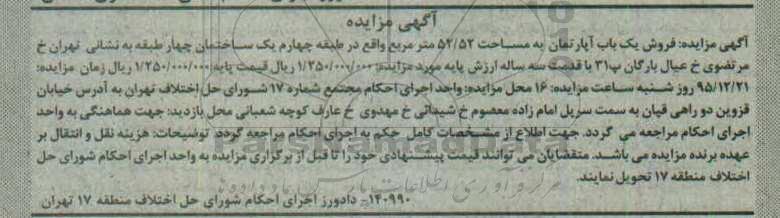 آگهی مزایده
آگهی مزایده: فروش یک باب آپارتمان به مساحت ۵۲/۵۲ متر مربع واقع در طبقه چهارم یک ساختمان چهار طبقه به نشانی تهران خ
مرتضوی خ عیال بارگان پ۳۱ با قدمت سه ساله ارزش پایه مورد مزایده: ۱/۲۵۰/۰۰۰/۰۰۰ ریال قیمت پایه: ۱/۲۵۰/۰۰۰/۰۰۰ ریال زمان مزایده:
۹۵/۱۲/۲۱ روز شنبه ساعت مزایده: ۱۶ محل مزایده: واحد اجرای احکام مجتمع شماره ۱۷ شورای حل اختلاف تهران به آدرس خیابان
قزوین دو راهی قپان به سمت سرپل امام زاده معصوم خ شیدائی خ مهدوی خ عارف کوچه شعبانی محل بازدید: جهت هماهنگی به واحد
اجرای احکام مراجعه می گردد. جهت اطلاع از مشخصات کامل حکم به اجرای احکام مراجعه گردد. توضیحات: هزینه نقل و انتقال بر
عهده برنده مزایده می باشد. متقضایان می توانند قیمت پیشنهادی خود را تا قبل از برگزاری مزایده به واحد اجرای احکام شورای حل
اختلاف منطقه ۱۷ تحویل نمایند.
۱۴۰۹۹۰- دادورز اجرای احکام شورای حل اختلاف منطقه ۱۷ تهران
ParsNamadData